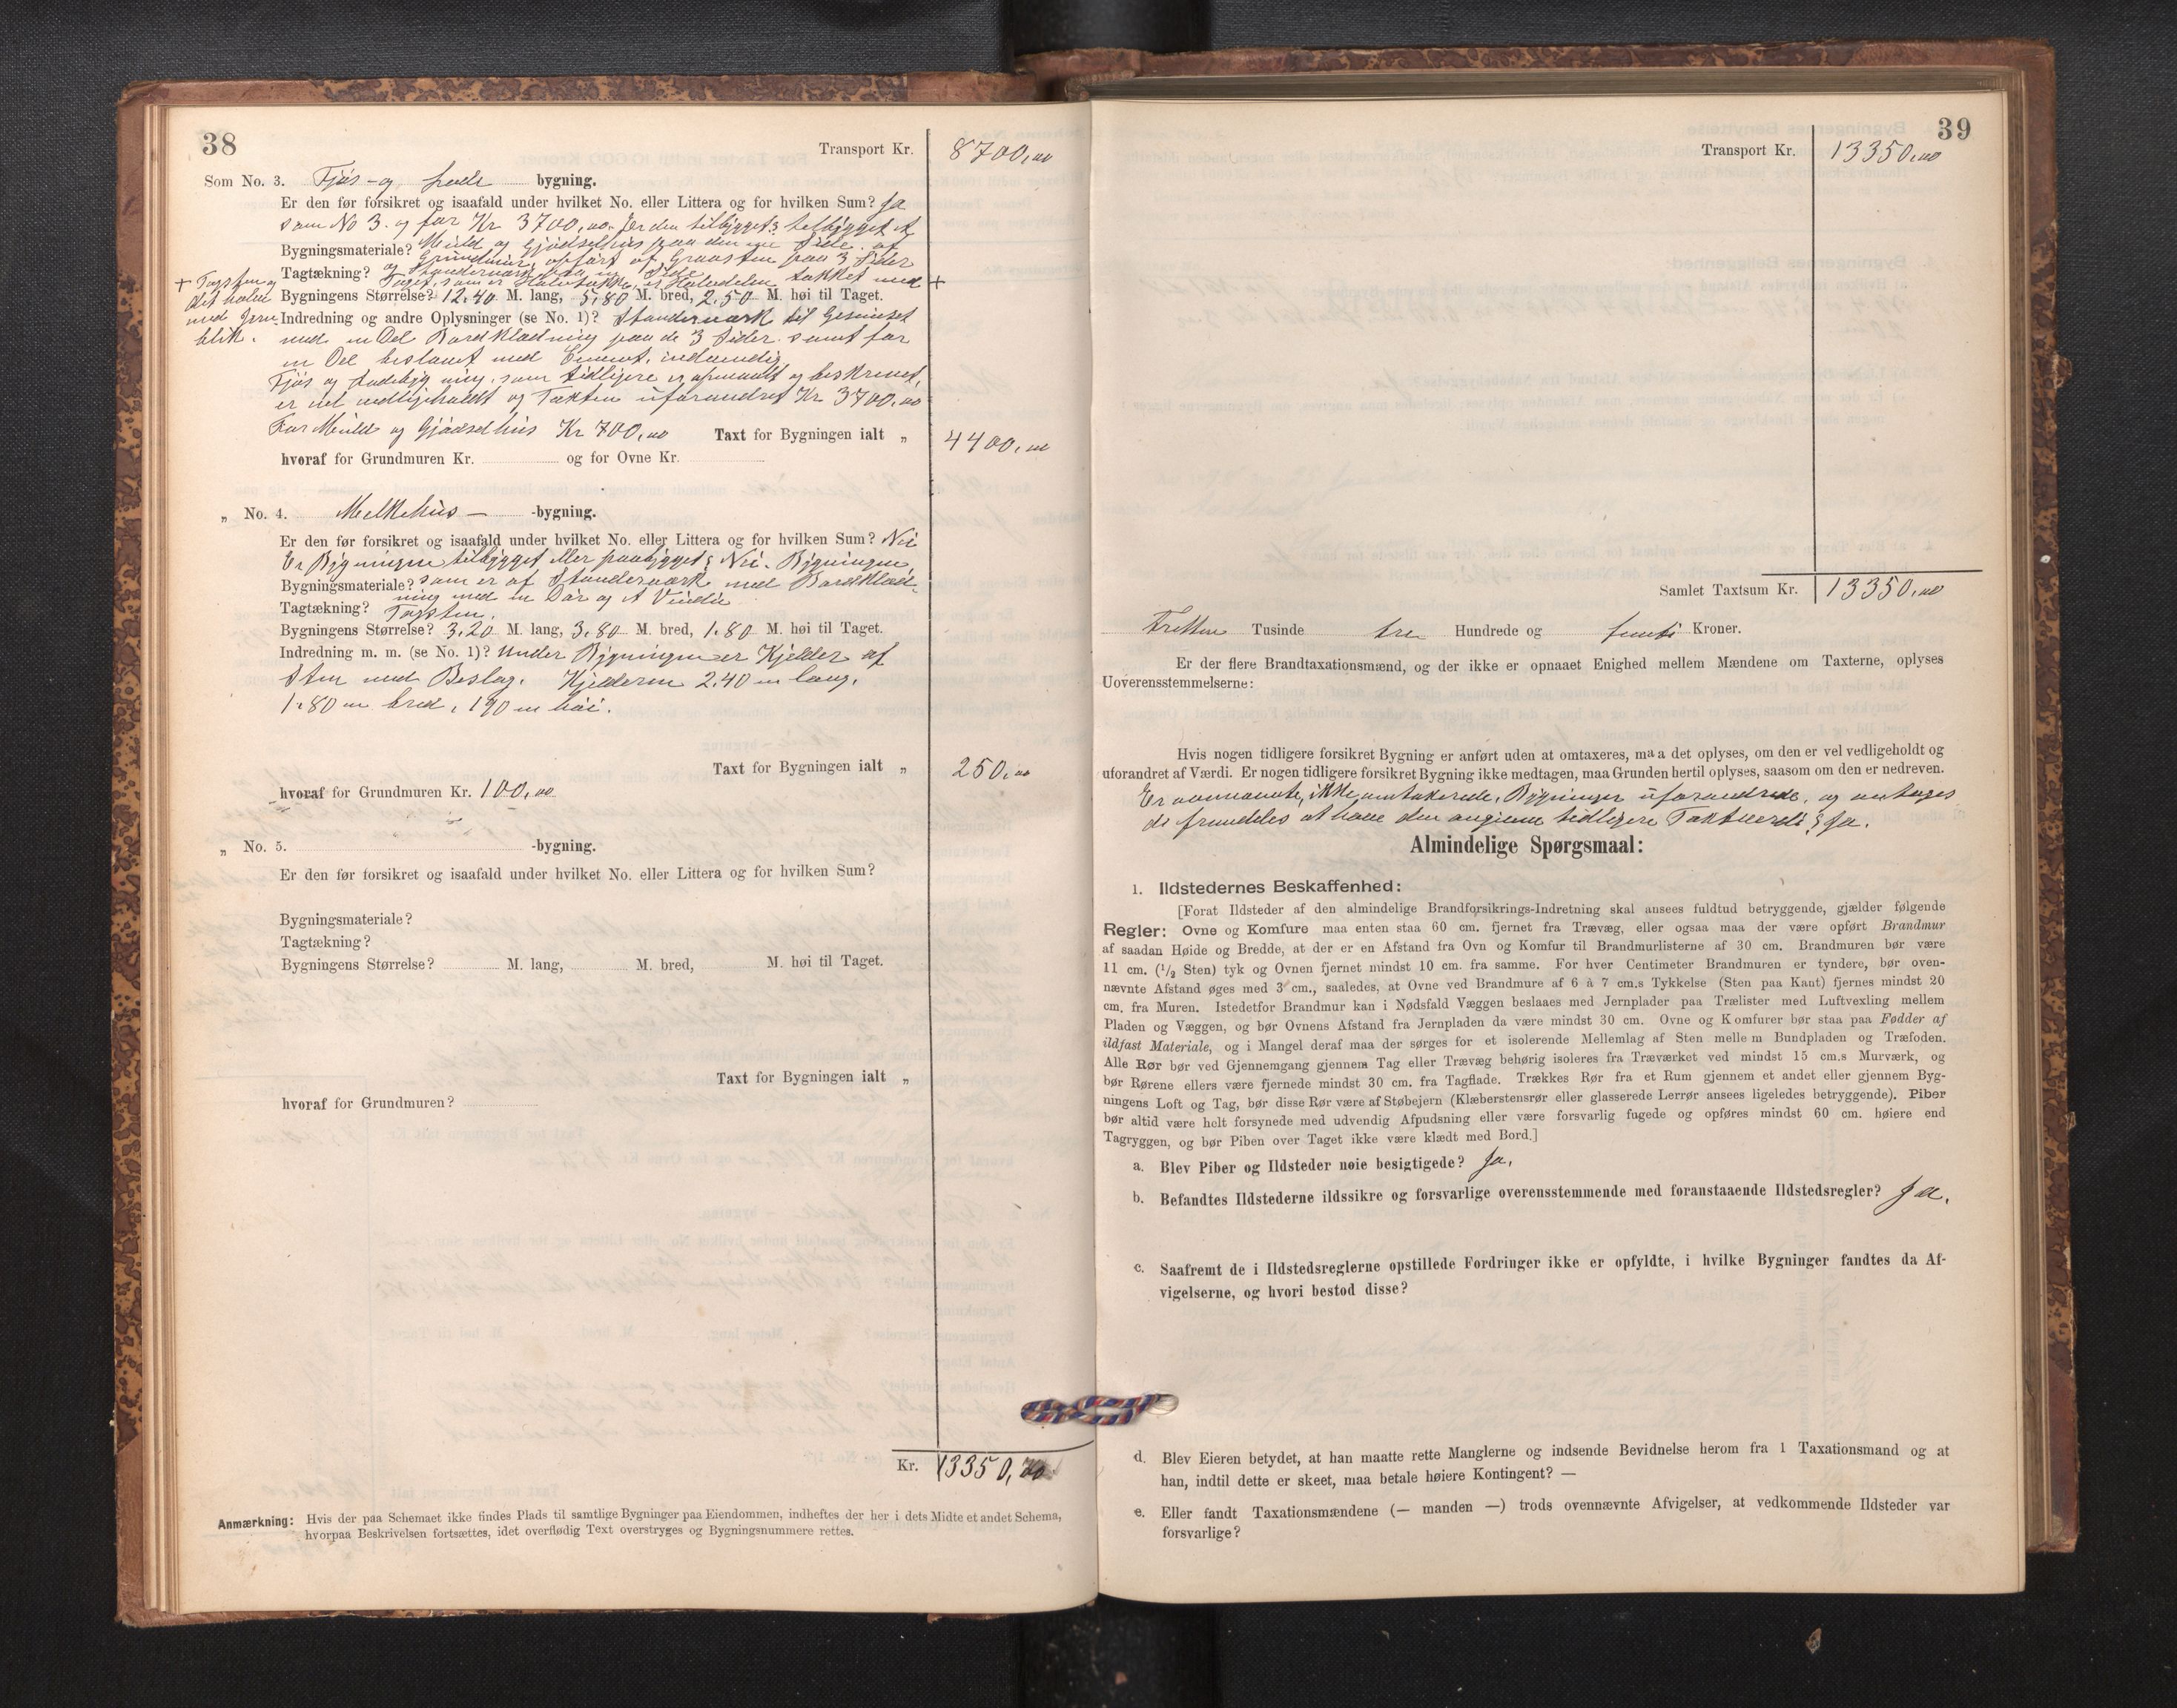 38
Transport Kr. 8700,00
Som No. 3. Fjøs- og Lade bygning.
Er den før forsikret og isaafald under hvilket No. eller Littera og for hvilken Sum? Ja
som No 3. og for Kr 3700,00. Er den tilbygget? tilbygget et
Bygningsmateriale? Meuld og Gjødselhus paa den ene Side. af
Grundmur, opført af Graasten paa 3 Sider
og Standerværk paa en Side
Tagtækning? Taget, som er Halvtække, er Halvdelen tækket med +
+ Tagsten og
det halve
med Jern-
blik.
Bygningens Størrelse? 12,40 M. lang, 5,80 M. bred, 2,50 M. høi til Taget.
Indredning og andre Oplysninger (se No. 1)? Standerværk til Gesimset
med en Del Bordklædning paa de 3 Sider samt for
en Del beslaaet med Cement, indvendig.
Fjøs og Ladebygning, som tidligere er opmaalt og beskrevet,
er vel vedligeholdt og Taxten uforandret Kr 3700,00
For Meuld og Gjødselhus Kr 700,00 Taxt for Bygningen ialt „ 4400,00
hvoraf for Grundmuren Kr. og for Ovne Kr.
„ No. 4. Melkehus - -bygning.
Er den før forsikret og isaafald under hvilket No. eller Littera og for hvilken Sum? Nei
Er Bygningen tilbygget eller paabygget? Nei. Bygningen,
Bygningsmateriale? som er af Standerværk med Bordklæd-
ning med en Dør og et Vindu
Tagtækning? Tagsten.
Bygningens Størrelse? 3,20 M. lang, 3,80 M. bred, 1,80 M. høi til Taget.
Indredning m. m. (se No. 1)? Under Bygningen er Kjelder af
Sten med Beslag. Kjelderen 2,40 m lang,
1,80 m bred, 190 m høi.
Taxt for Bygningen ialt „ 250,00
hvoraf for Grundmuren Kr. 100,00
„ No. 5. -bygning.
Er den før forsikret og isaafald under hvilket No. eller Littera og for hvilken Sum?
Bygningsmateriale?
Tagtækning?
Bygningens Størrelse? M. lang, M. bred, M. høi til Taget.
Taxt for Bygningen ialt „
hvoraf for Grundmuren?
Kr. 13350,00
Anmærkning: Hvis der paa Schemaet ikke findes Plads til samtlige Bygninger paa Eiendommen, indheftes der her i dets Midte et andet Schema,
hvorpaa Beskrivelsen fortsættes, idet overflødig Text overstryges og Bygningsnummere rettes.
39
Transport Kr. 13350,00
Samlet Taxtsum Kr. 13350,00
Tretten Tusinde tre Hundrede og femti Kroner.
Er der flere Brandtaxationsmænd, og der ikke er opnaaet Enighed mellem Mændene om Taxterne, oplyses
Uoverensstemmelserne:
Hvis nogen tidligere forsikret Bygning er anført uden at omtaxeres, maa det oplyses, om den er vel vedligeholdt og
uforandret af Værdi. Er nogen tidligere forsikret Bygning ikke medtagen, maa Grunden hertil oplyses, saasom om den er nedreven.
Er ovennævnte, ikke omtakserede, Bygninger uforandrede, og antages
de fremdeles at have den angivne tidligere Taxtværdi? Ja.
Almindelige Spørgsmaal:
1. Ildstedernes Beskaffenhed:
[Forat Ildsteder af den almindelige Brandforsikrings-Indretning skal ansees fuldtud betryggende, gjælder følgende
Regler: Ovne og Komfure maa enten staa 60 cm. fjernet fra Trævæg, eller ogsaa maa der være opført Brandmur
af saadan Høide og Bredde, at der er en Afstand fra Ovn og Komfur til Brandmurlisterne af 30 cm. Brandmuren bør være
11 cm. (1/2 Sten) tyk og Ovnen fjernet mindst 10 cm. fra samme. For hver Centimeter Brandmuren er tyndere, bør oven-
nævnte Afstand øges med 3 cm., saaledes, at Ovne ved Brandmure af 6 à 7 cm.s Tykkelse (Sten paa Kant) fjernes mindst 20
cm. fra Muren. Istedetfor Brandmur kan i Nødsfald Væggen beslaaes med Jernplader paa Trælister med Luftvexling mellem
Pladen og Væggen, og bør Ovnens Afstand fra Jernpladen da være mindst 30 cm. Ovne og Komfurer bør staa paa Fødder af
ildfast Materiale, og i Mangel deraf maa der sørges for et isolerende Mellemlag af Sten mellem Bundpladen og Træfoden.
Alle Rør bør ved Gjennemgang gjennem Tag eller Trævæg behørig isoleres fra Træværket ved mindst 15 cm.s Murværk, og
bør Rørene ellers være fjernede mindst 30 cm. fra Tagflade. Trækkes Rør fra et Rum gjennem et andet eller gjennem Byg-
ningens Loft og Tag, bør disse Rør være af Støbejern (Klæberstensrør eller glasserede Lerrør ansees ligeledes betryggende). Piber
bør altid være helt forsynede med udvendig Afpudsning eller være forsvarlig fugede og opføres mindst 60 cm. høiere end
Tagryggen, og bør Piben over Taget ikke være klædt med Bord.]
a. Blev Piber og Ildsteder nøie besigtigede? Ja.
b. Befandtes Ildstederne ildssikre og forsvarlige overensstemmende med foranstaaende Ildstedsregler? Ja.
c. Saafremt de i Ildstedsreglerne opstillede Fordringer ikke er opfyldte, i hvilke Bygninger fandtes da Af-
vigelserne, og hvori bestod disse?
d. Blev Eieren betydet, at han maatte rette Manglerne og indsende Bevidnelse herom fra 1 Taxationsmand og at
han, indtil dette er skeet, maa betale høiere Kontingent? —
e. Eller fandt Taxationsmændene (— manden —) trods ovennævnte Afvigelser, at vedkommende Ildsteder var
forsvarlige?